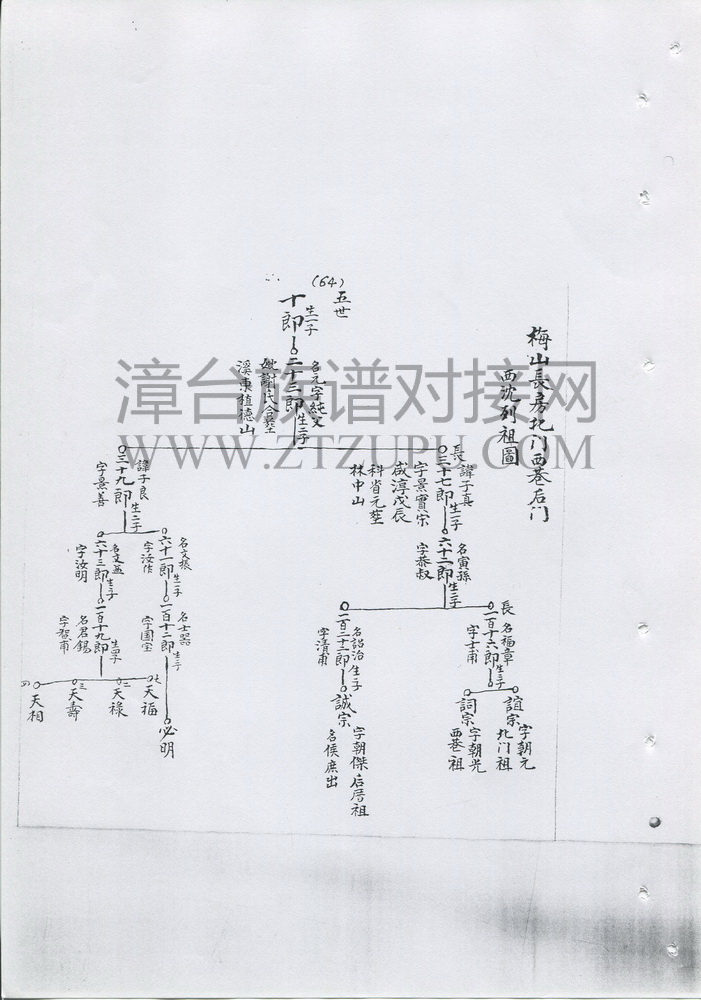 梅山長房北门西巷后门
西沈列祖圖
五世
(64)
十郎
生一子
二十三郎
名元字純文
生二子
妣謝氏合塟
溪東植德山
長
三十七郎
諱子真
生一子
字景實宗
咸淳戊辰
科省元塟
林中山
六十二郎
名寅孫
生二子
字恭叔
長
一百十六郎
名福章
生二子
字士甫
誼宗
字朝元
北门祖
詞宗
字朝光
西巷祖
一百二十二郎
名詔治
生一子
字清甫
誠宗
字朝傑后厝祖
名侯庶出
三十九郎
諱子良
生二子
字景善
六十一郎
名文振
生一子
字汝作
一百十二郎
名士器
生一子
字國宝
必明
六十三郎
名文益
生一子
字汝明
一百十九郎
生四子
名君錫
字智甫
長
天福
二
天祿
三
天壽
四
天相
漳台族谱对接网
WWW.ZTZUPU.COM